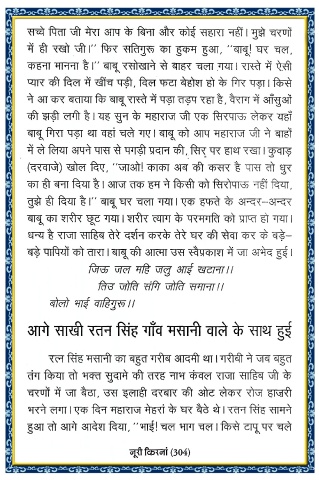 सच्चे पिता जी मेरा आप के बिना और कोई सहारा नहीं। मुझे चरणों
में ही रखो जी।'' फिर सतिगुरू का हुकम हुआ, ''बाबू! घर चल,
कहना मानना है।'' बाबू रसोखाने से बाहर चला गया। रास्ते में ऐसी
प्यार की दिल में खींच पड़ी, दिल फटा बेहोश हो के गिर पड़ा। किसे
ने आ कर बताया कि बाबू रास्ते में पड़ा तड़प रहा है, वैराग में आँसुओं
की झड़ी लगी है। यह सुन के महाराज जी एक सिरपाऊ लेकर यहाँ
बाबू गिरा पड़ा था वहां चले गए। बाबू को आप महाराज जी ने बाहों
में ले लिया अपने पास से पगड़ी प्रदान की, सिर पर हाथ रखा। कुवाड़
(दरवाजे) खोल दिए, ''जाओ! काका अब की कसर है पास तो धुर
का ही बना दिया है। आज तक हम ने किसी को सिरोपाऊ नहीं दिया,
तुझे ही दिया है।'' बाबू घर चला गया। एक हफते के अन्दर-अन्दर
बाबू का शरीर छूट गया। शरीर त्याग के परमगति को प्राप्त हो गया।
धन्य है राजा साहिब तेरे दर्शन करके तेरे घर की सेवा कर के बड़े-
बड़े पापियों को तारा। बाबू की आत्मा उस स्वैप्रकाश में जा अभेद हुई।
जिऊ जल महि जलु आई खटाना।।
तिउ जोति संगि जोति समाना।।
बोलो भाई वाहिगुरू।।
आगे साखी रतन सिंह गाँव मसानी वाले के साथ हुई
रत्न सिंह मसानी का बहुत गरीब आदमी था। गरीबी ने जब बहुत
तंग किया तो भक्त सुदामे की तरह नाभ कंवल राजा साहिब जी के
चरणों में जा बैठा, उस इलाही दरबार की ओट लेकर रोज हाजरी
भरने लगा। एक दिन महाराज मेहरां के घर बैठे थे। रतन सिंह सामने
हुआ तो आगे आदेश दिया, ''भाई! चल भाग चल। किसे टापू पर चले
नूरी किरनां (304)